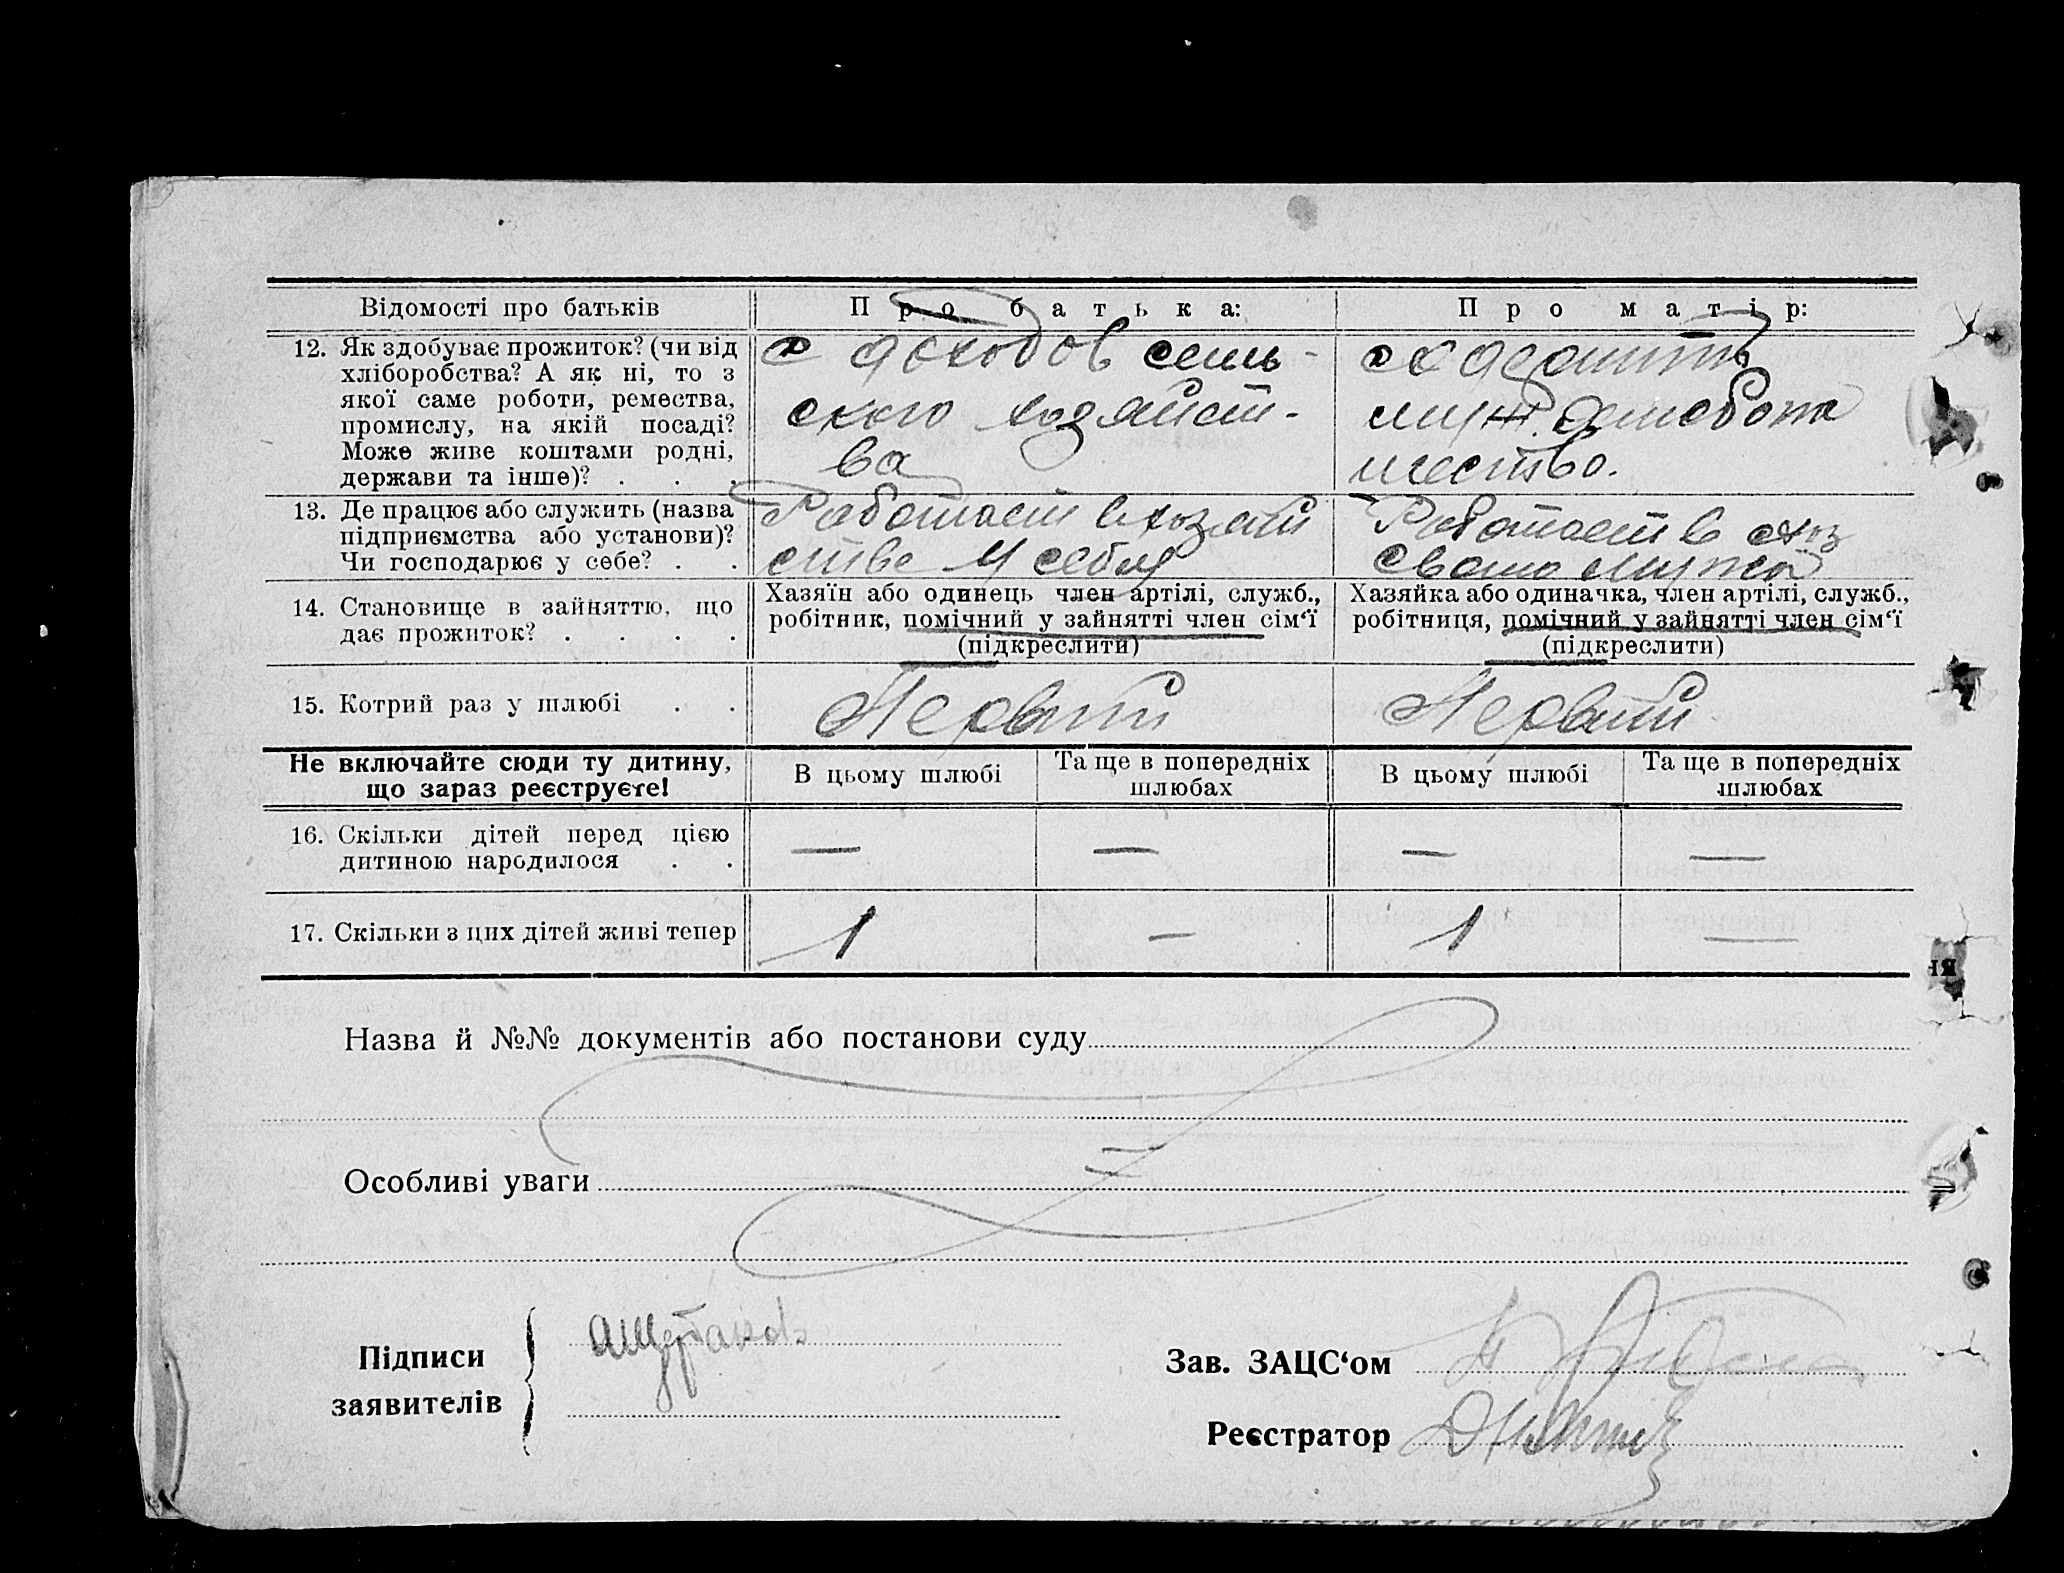 Відомості про батьків
Про батька:
Про матір:
12. Як здобуває прожиток? (чи від
хліборобства? А як ні, то з
якої саме роботи, ремества,
промислу, на якій посаді?
Може живе коштами родні,
держави та інше)? . . .
с доходов сель-
ского хозяйст-
ва
муж.
13. Де працює або служить (назва
підприємства або установи)?
Чи господарює у себе? . .
Работает в хозяй
стве у себя
Работает в хоз
свого мужа
14. Становище в зайняттю, що
дає прожиток? . . . .
Хазяїн або одинець член артілі, служб.,
робітник, помічний у зайнятті член сім'ї
(підкреслити)
Хазяйка або одиначка, член артілі, служб.,
робітниця, помічний у зайнятті член сім'ї
(підкреслити)
15. Котрий раз у шлюбі . .
Первий
Первий
Не включайте сюди ту дитину,
що зараз реєструєте!
В цьому шлюбі
Та ще в попередніх
шлюбах
В цьому шлюбі
Та ще в попередніх
шлюбах
16. Скільки дітей перед цією
дитиною народилося . .
— — — —
17. Скільки з цих дітей живі тепер
1 — 1 —
Назва й №№ документів або постанови суду
Особливі уваги
Підписи
заявителів
Зав. ЗАЦС'ом
Реєстратор
ня